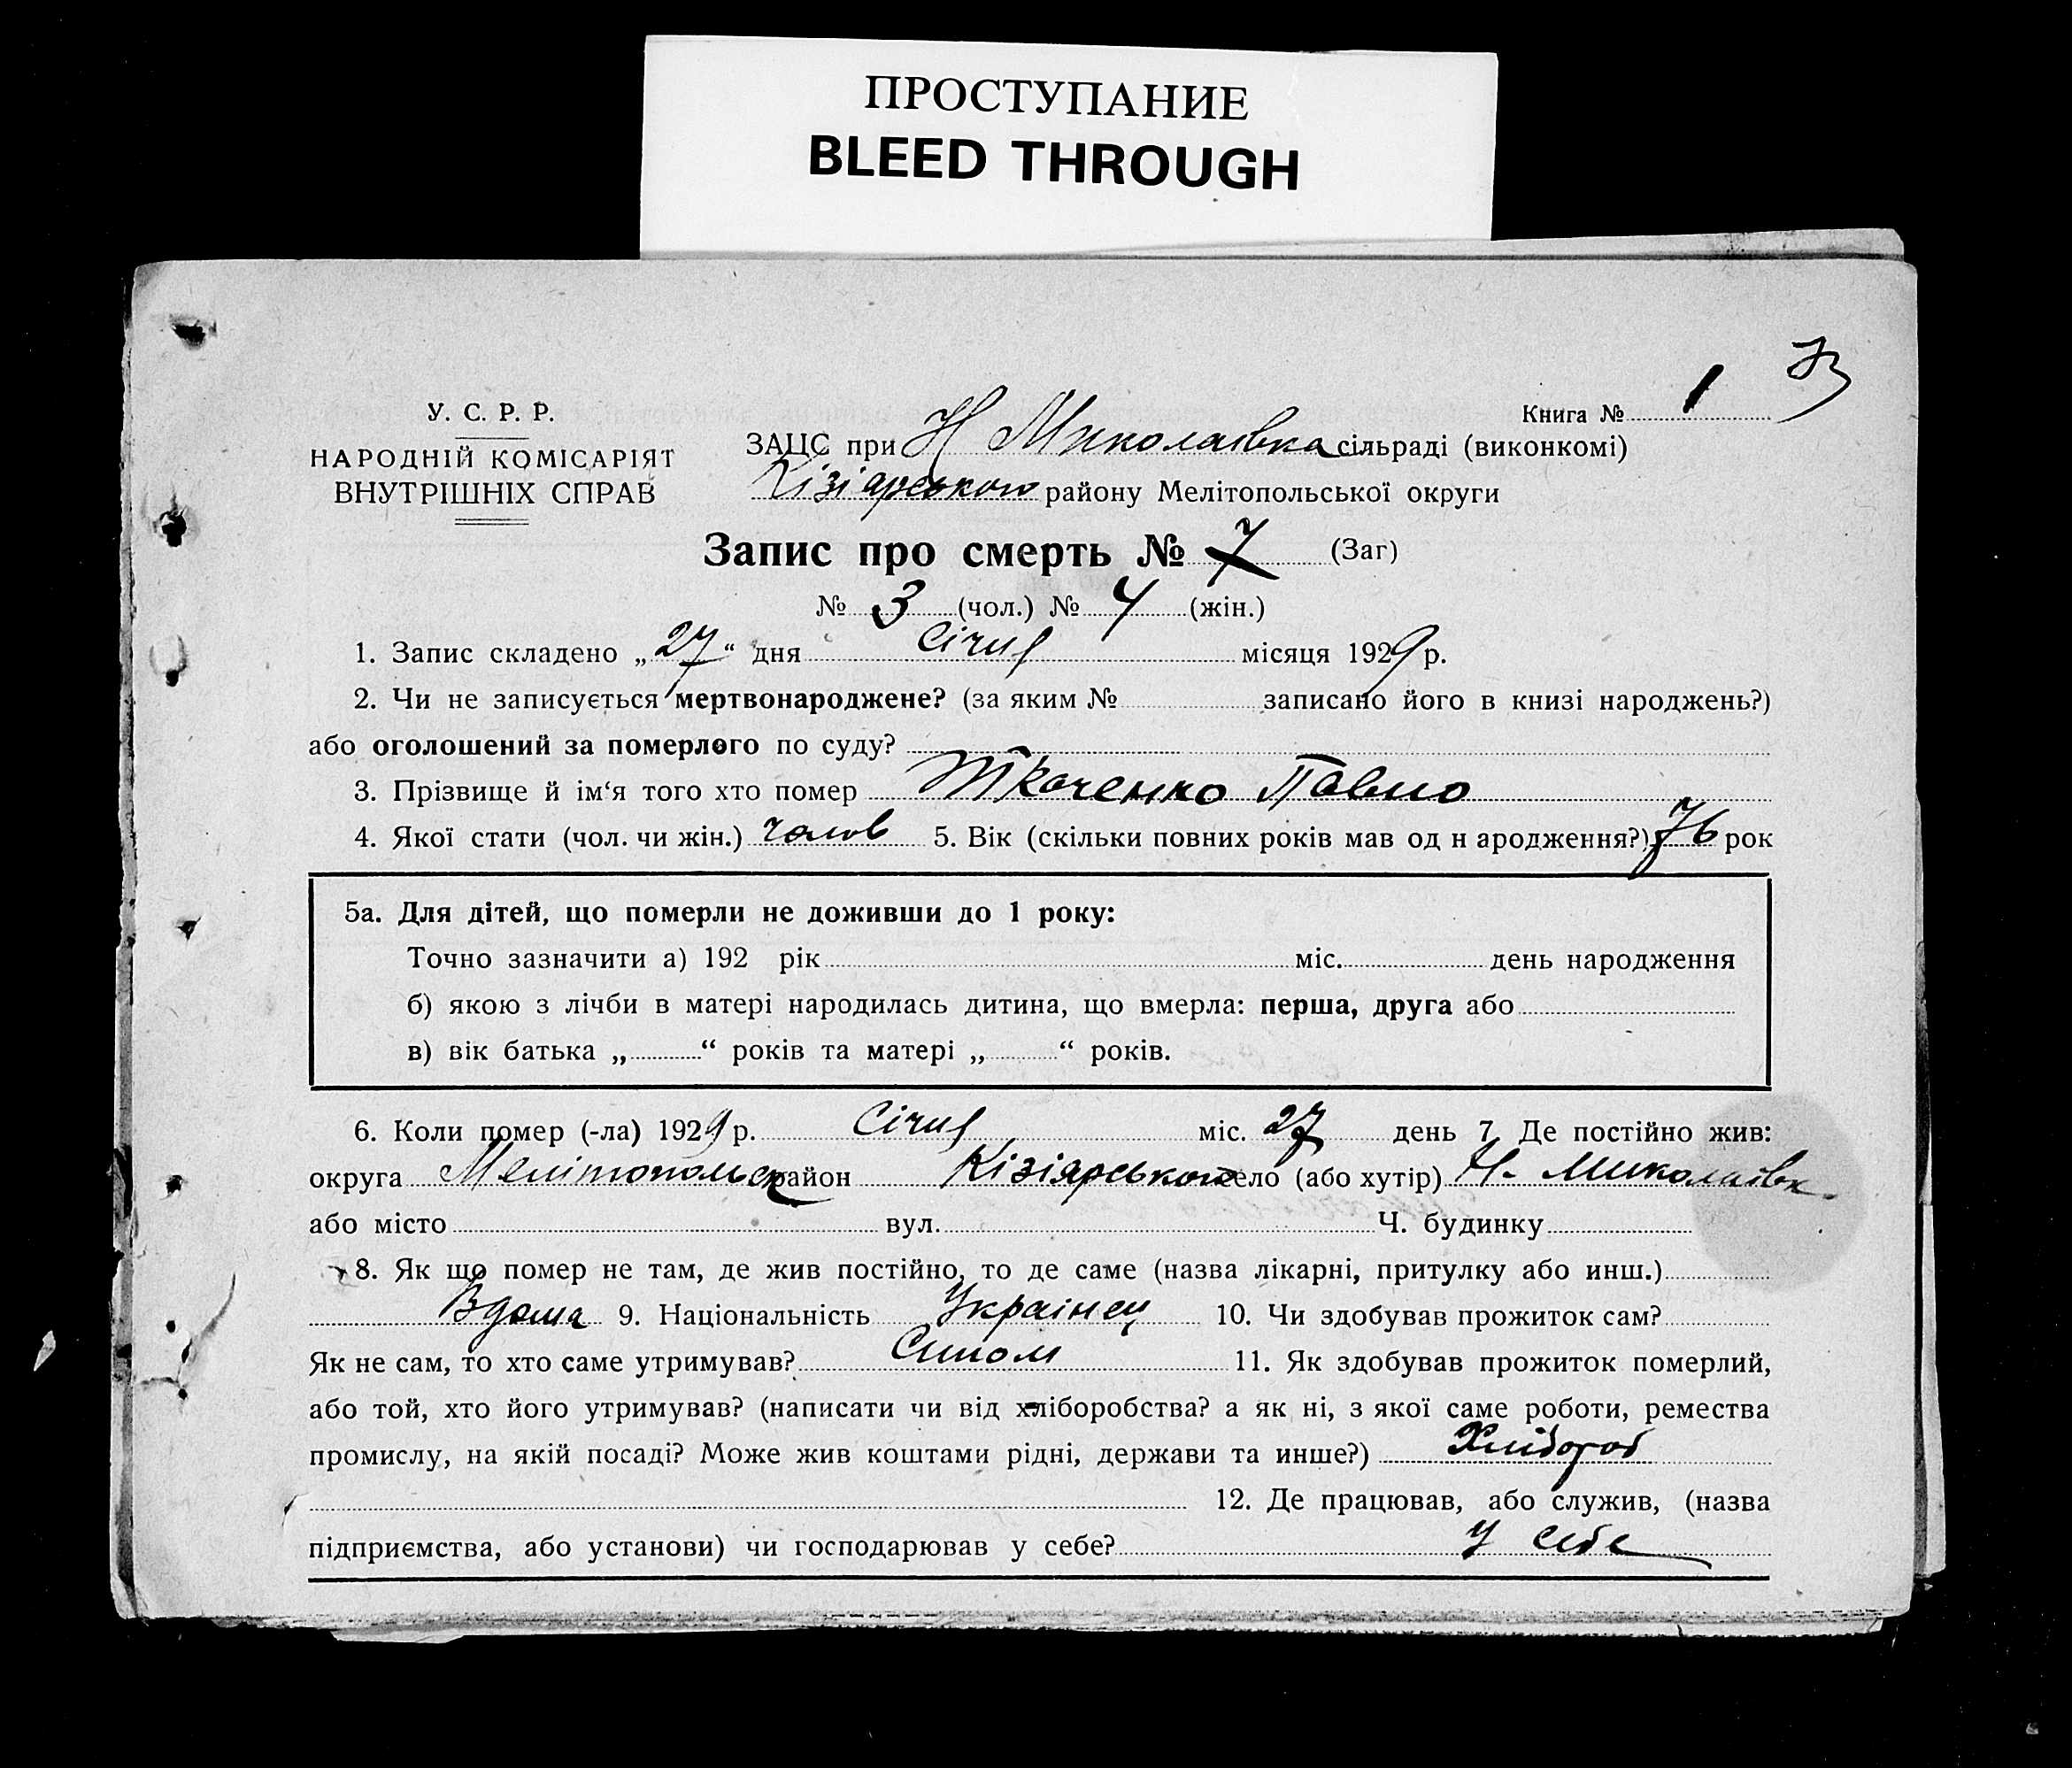 ПРОСТУПАНИЕ
BLEED THROUGH
73
Книга № 1
У. С. Р. Р.
НАРОДНІЙ КОМІСАРІЯТ
ВНУТРІШНІХ СПРАВ
ЗАЦС при Н Миколаівка сільраді (виконкомі)
Кізіарського району Мелітопольської округи
Запис про смерть № 7 (Заг)
№ 3 (чол.) № 4 (жін.)
1. Запис складено „27“ дня Січня місяця 1929 р.
2. Чи не записується мертвонароджене? (за яким № записано його в книзі народжень?)
або оголошений за померлого по суду?
3. Прізвище й ім‘я того хто помер Ткаченко Павло
4. Якої стати (чол. чи жін.) чолов 5. Вік (скільки повних років мав од н ародження?) 76 рок
5а. Для дітей, що померли не доживши до 1 року:
Точно зазначити а) 192 рік міс. день народження
б) якою з лічби в матері народилась дитина, що вмерла: перша, друга або
в) вік батька „ “ років та матері „ “ років.
6. Коли помер (-ла) 1929 р. Січня міс. 27 день 7. Де постійно жив:
округа Мелітопольск район Кізіярського село (або хутір) Н. Миколаівк
або місто вул. Ч. будинку
8. Як що помер не там, де жив постійно, то де саме (назва лікарні, притулку або инш.)
Вдома 9. Національність Українец 10. Чи здобував прожиток сам?
Як не сам, то хто саме утримував? Сином 11. Як здобував прожиток померлий,
або той, хто його утримував? (написати чи від хліборобства? а як ні, з якої саме роботи, ремества
промислу, на якій посаді? Може жив коштами рідні, держави та инше?) Хлібороб
12. Де працював, або служив, (назва
підприємства, або установи) чи господарював у себе? У себе